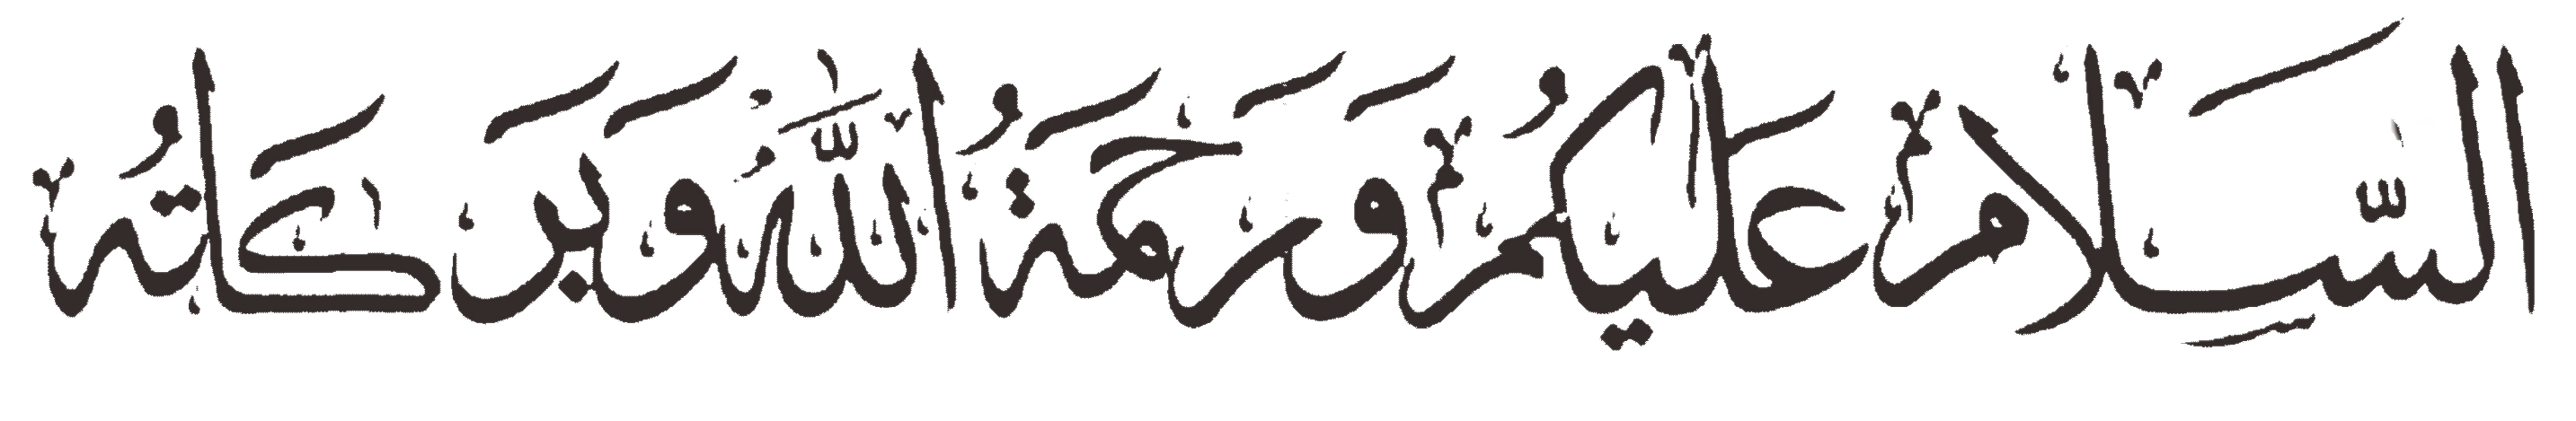 السَّلَامُ عَلَيْكُمْ وَرَحْمَةُ اللَّهِ وَبَرَكَاتُهُ